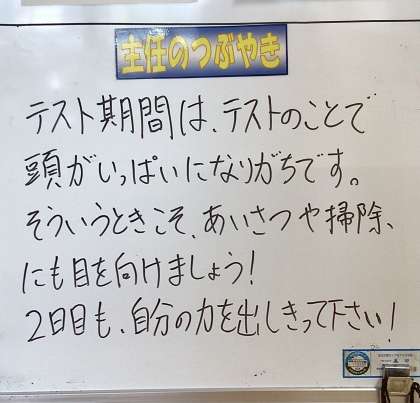 主任のつぶやき
テスト期間は、テストのことで
頭がいっぱいになりがちです。
そういうときこそ、あいさつや掃除、
にも目を向けましょう!
2日目も、自分の力を出しきって下さい!